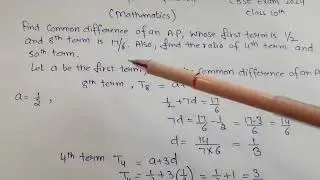 CBSE Exam 2024
(Mathematics) class 10th
Find Common difference of an A.P, whose first term is 1/2
and 8th term is 17/6. Also, find the ratio of 4th term and
50th term.
Let a be the first term, common difference of A.P
8th term, T₈ =
a = 1/2 , 1/2 + 7d = 17/6
7d = 17/6 - 1/2 = 17-3/6 = 14/6
d = 14/7×6 = 1/3
4th term T₄ = a+3d
= 1/2 + 3(1/3) = 1/2 + 1 = 3